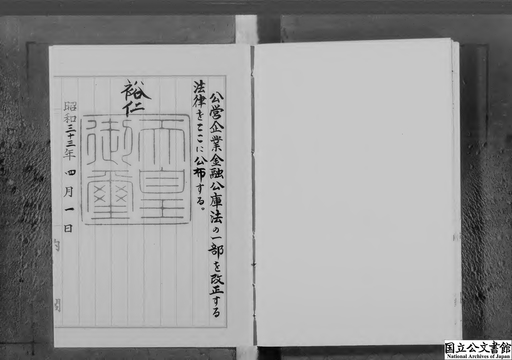 公営企業金融公庫法の一部を改正する
法律をここに公布する。
裕仁
天皇
御璽
昭和三十三年四月一日
国立公文書館
National Archives of Japan